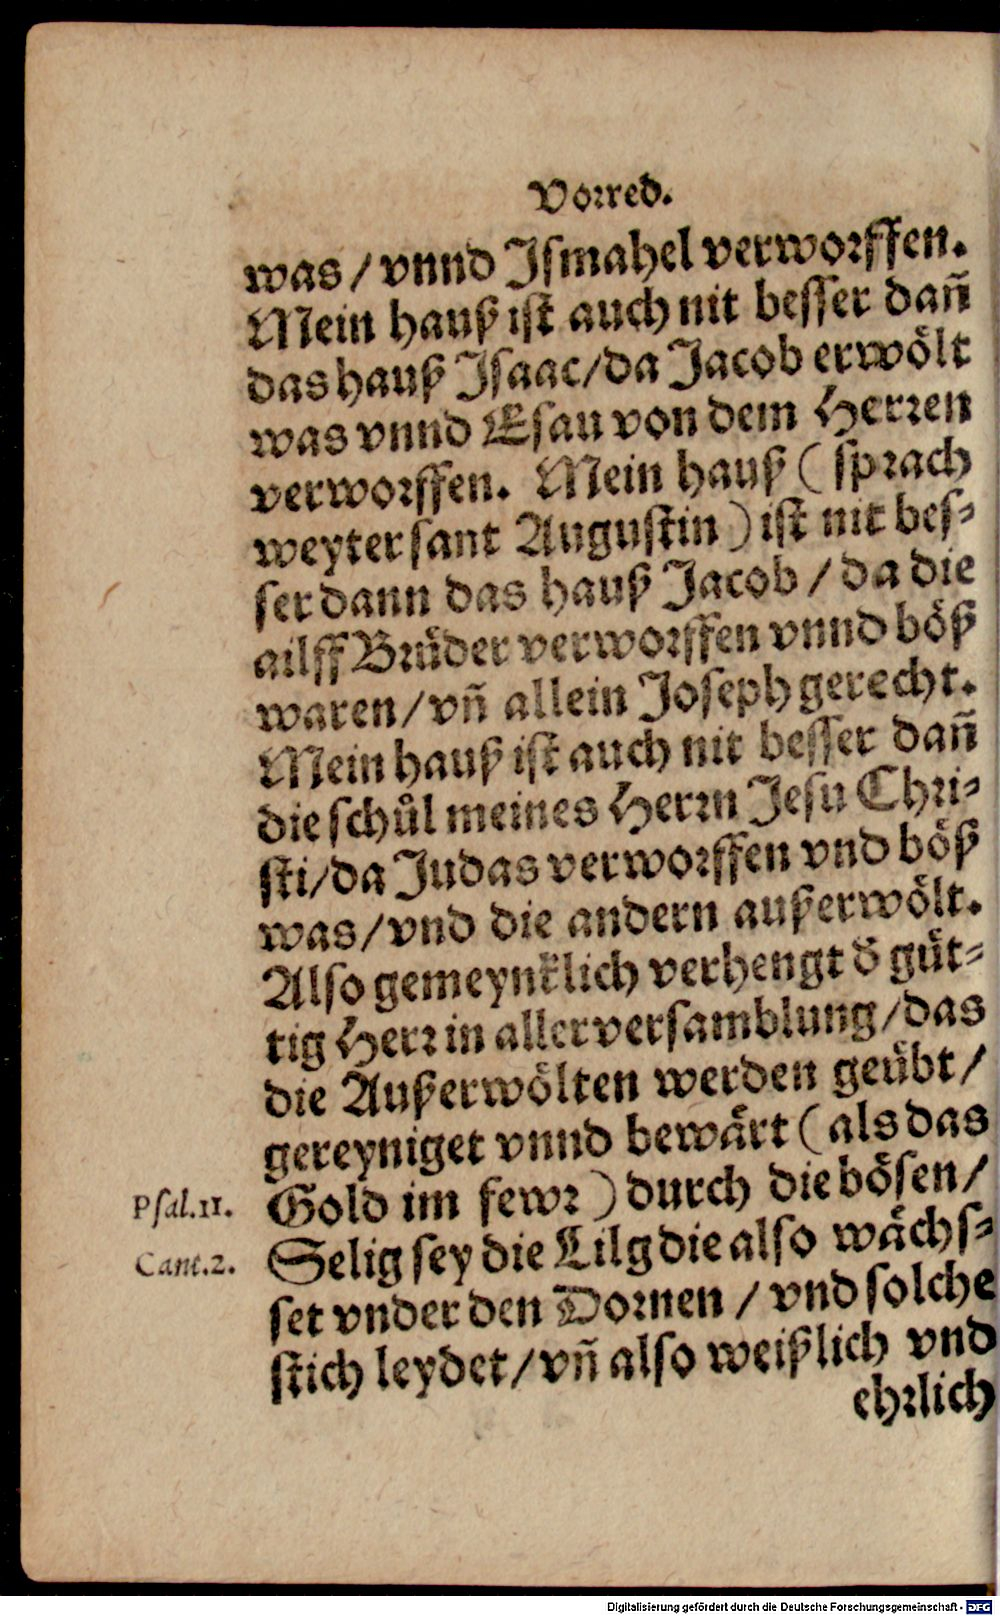 Vorred.
was / vnnd Ismahel verworffen.
Mein hauß ist auch nit besser dañ
das hauß Isaac/da Jacob erwölt
was vnnd Esau von dem Herren
verworffen. Mein hauß ( sprach
weyter sant Augustin ) ist nit bes-
ser dann das hauß Jacob / da die
ailff Brüder verworffen vnnd böß
waren/vñ allein Joseph gerecht.
Mein hauß ist auch nit besser dañ
die schůl meines Herrn Jesu Chri-
sti/da Judas verworffen vnd böß
was/vnd die andern außerwölt.
Also gemeynklich verhengt d̕ güt-
tig Herr in aller versamblung/das
die Außerwölten werden geübt/
gereyniget vnnd bewärt ( als das
Psal.11. Gold im fewr ) durch die bösen/
Cant.2. Selig sey die Lilg die also wächs-
set vnder den Dornen / vnd solche
stich leydet/vñ also weißlich vnd
ehrlich
Digitalisierung gefördert durch die Deutsche Forschungsgemeinschaft - DFG